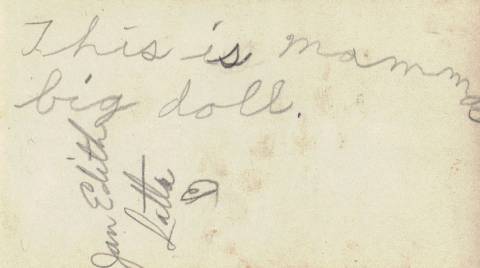 This is mamma
big doll.
Jan Edith
Latta